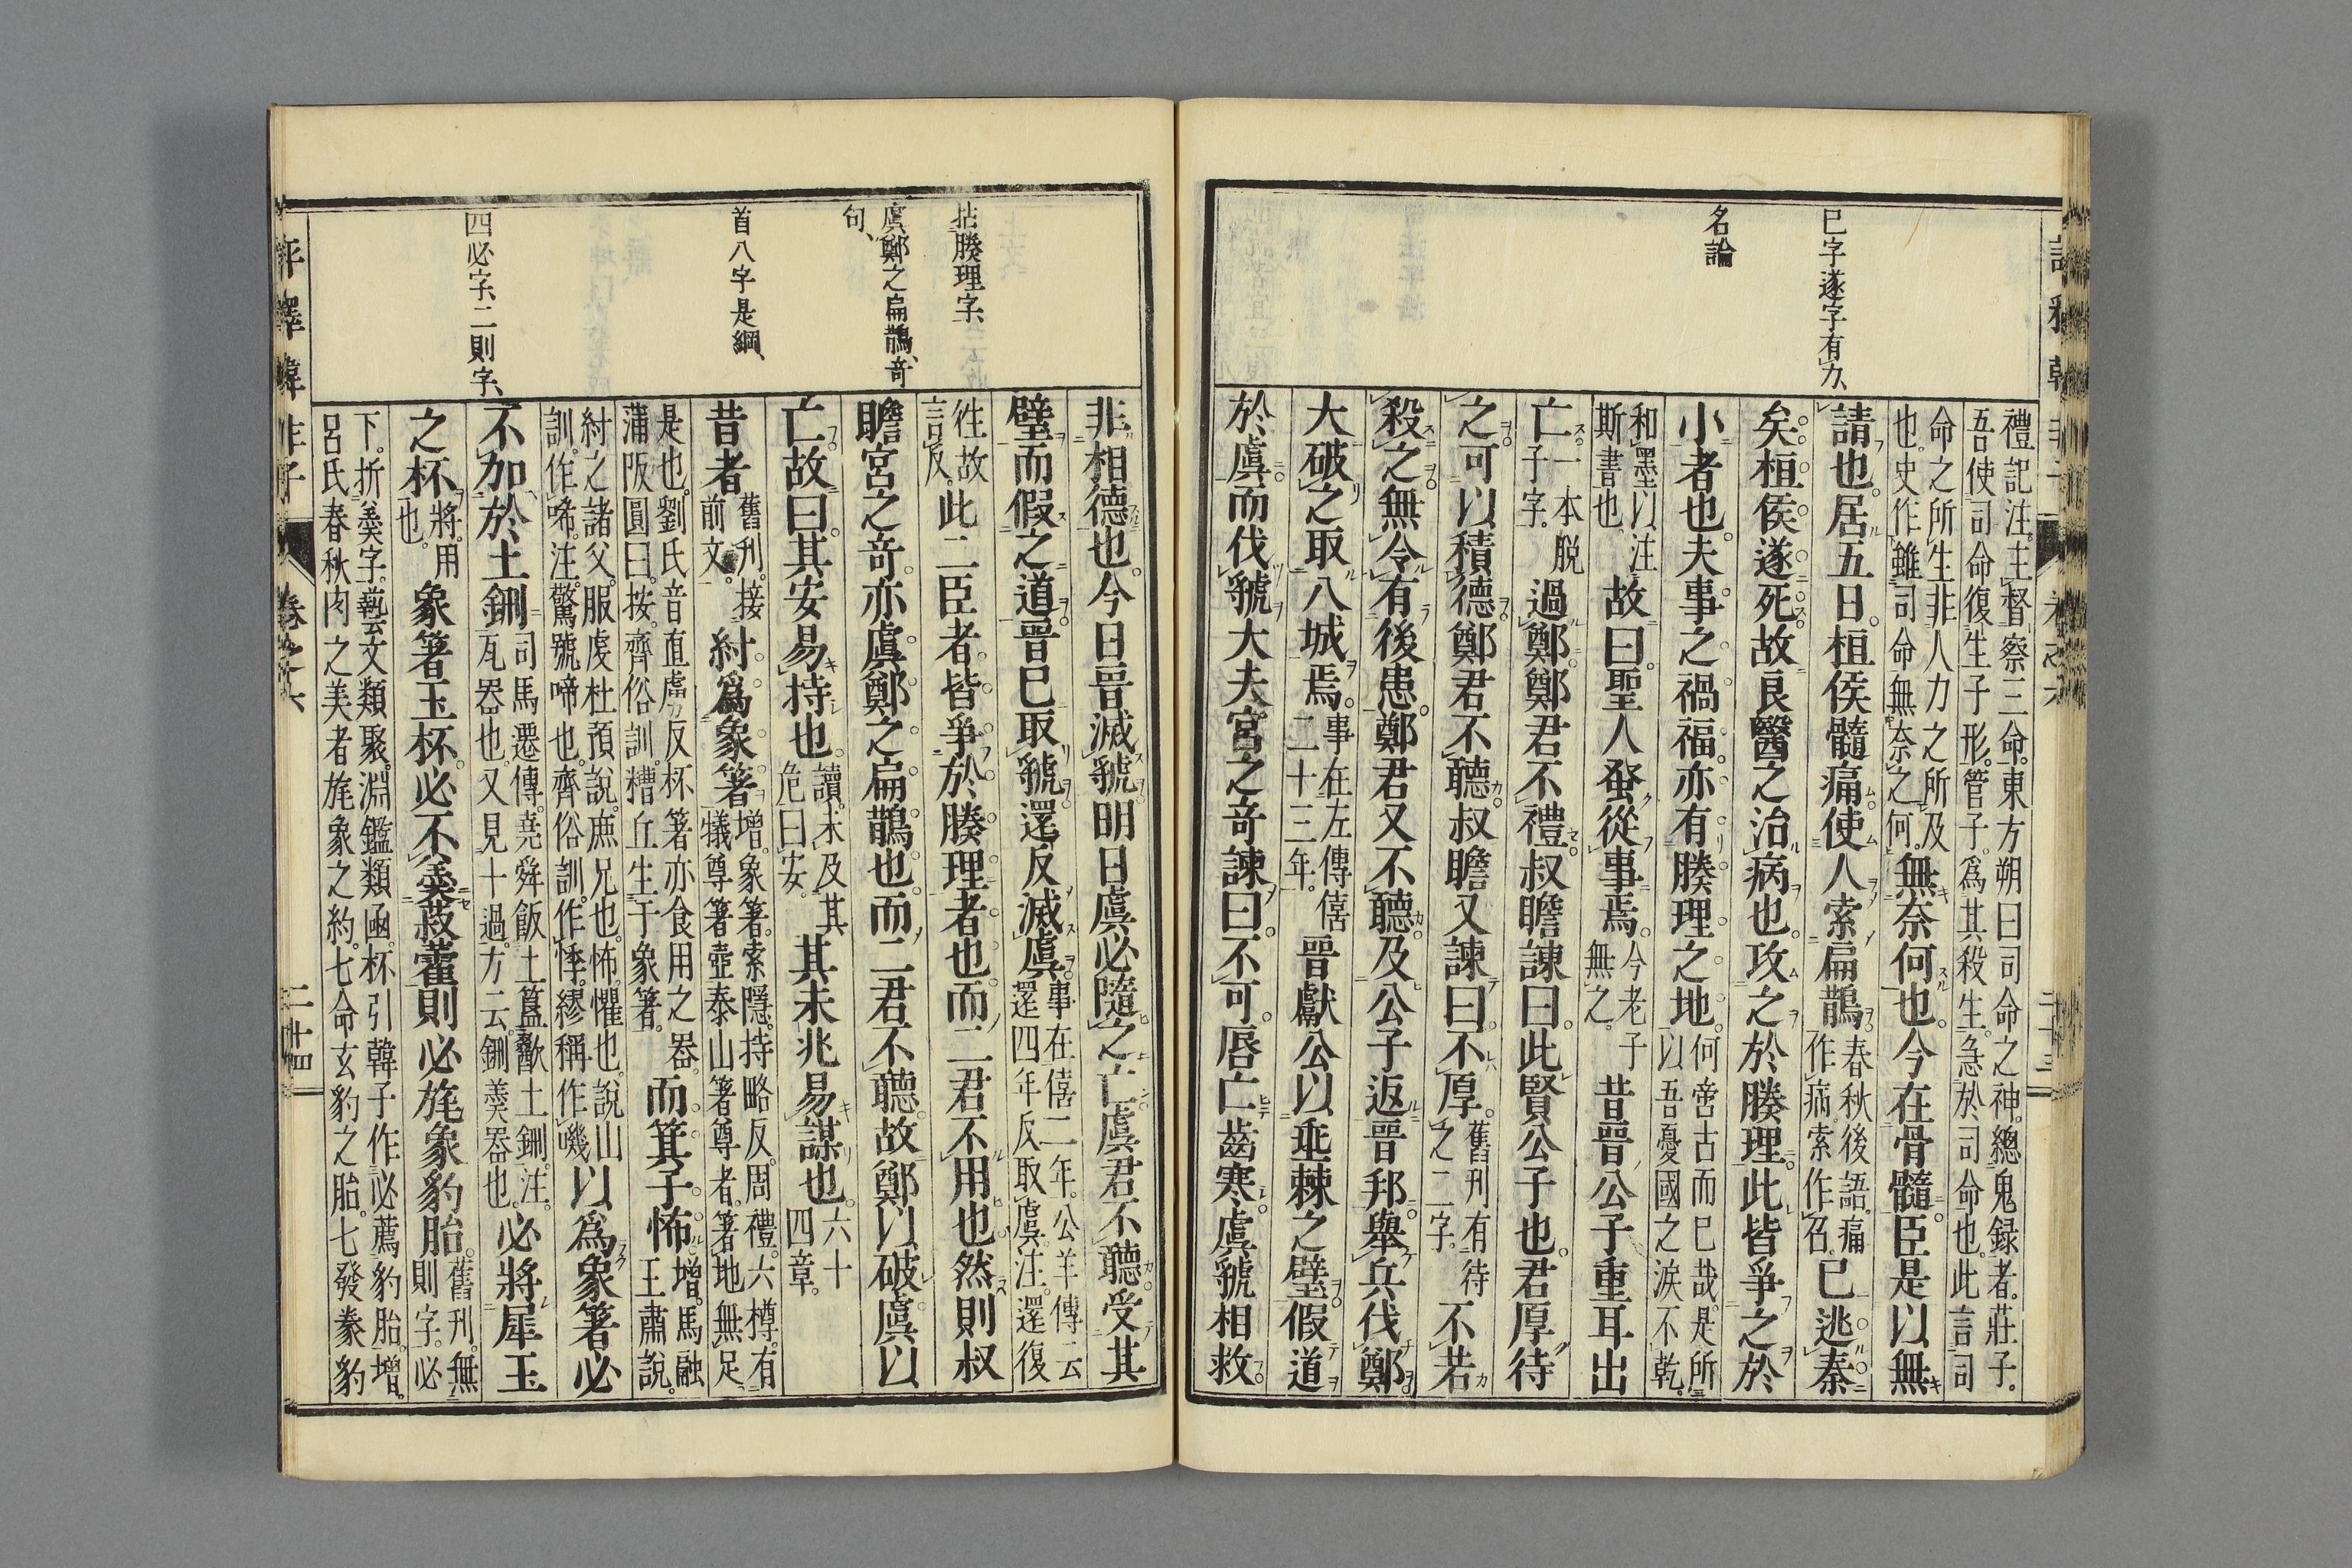 巳字遂字有力、
名論
禮記注。主督察三命。東方朔曰司命之神。總鬼録者。莊子。
吾使司命復生子形。管子。爲其殺生。急於司命也。此言司
命之所生非人力之所及
也。史作雖司命無奈之何。無奈何也。今在骨髓。臣是以無
請也。居五日。桓侯髓痛使人索扁鵲春秋後語。痛作病。索作召。已逃秦
矣。桓侯遂死。故良醫之治病也。攻之於腠理。此皆爭之於
小者也。夫事之禍福。亦有腠理之地。何啻古而已哉。是所以吾憂國之涙不乾。
和墨以注斯書也。故曰。聖人蚤從事焉。今老子無之。昔晉公子重耳出
亡。一本脱子字。過鄭。鄭君不禮。叔瞻諫曰。此賢公子也。君厚待
之。可以積德。鄭君不聽。叔瞻又諫曰。不厚。舊刊有待之二字。不若
殺之。無令有後患。鄭君又不聽。及公子返晉邦。舉兵伐鄭。
大破之。取八城焉。事在左傳僖二十三年。晉獻公以垂棘之璧。假道
於虞而伐虢。大夫宮之奇諫曰。不可。唇亡齒寒。虞虢相救。
拈腠理字、
虞鄭之扁鵲、奇
句、
首八字是綱、
四必字、二則字、
非相德也。今日晉滅虢。明日虞必隨之亡。虞君不聽。受其
璧而假之道。晉已取虢。還反滅虞。事在僖二年。公羊傳云還四年反取虞。注。還復
往故言反。此二臣者。皆爭於腠理者也。而二君不用也。然則叔
瞻宮之奇。亦虞鄭之扁鵲也。而二君不聽。故鄭以破。虞以
亡。故曰。其安易持也。讀。未及其危曰安。其未兆易謀也。六十四章。
昔者舊刊。接前文。紂爲象箸增。象箸。索隱。持略反。周禮。六樽。有犧尊箸壺泰山箸尊者。箸地無足
是也。劉氏音直慮反。杯箸亦食用之器。
蒲阪圓曰。按。齊俗訓。糟丘生于象箸。而箕子怖。增。馬融王肅說。
紂之諸父。服虔杜預説。庶兄也。怖。懼也。説山
訓。作唏。注。驚號啼也。齊俗訓。作悸。繆稱作嘰。以爲象箸必
不加於土鉶司馬遷傳。堯舜飯土簋歠土鉶。注。瓦器也。又見十過。方云。鉶羮器也。必將犀玉
之杯。將。用也。象箸玉杯。必不羮菽藿。則必旄象豹胎。舊刊。無則字。必
下。折羮字。藝文類聚。淵鑑類函。杯引韓子作必薦豹胎。増。
呂氏春秋。肉之美者旄象之約。七命。玄豹之胎。七發。豢豹
評釋韓非子
卷之六
二十四